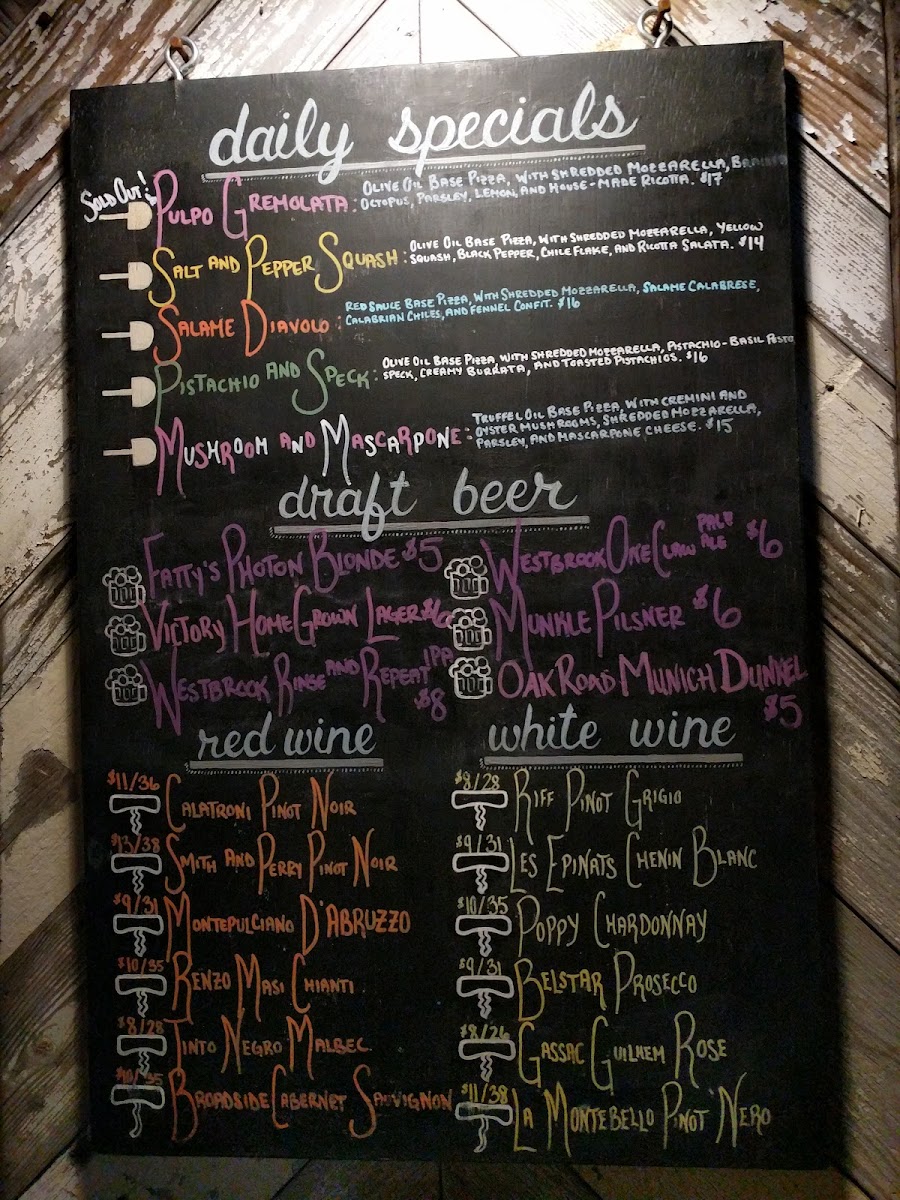 daily specials
Sold Out!
Pulpo Gremolata: Olive Oil Base Pizza, with Shredded Mozzarella, Braised
Octopus, Parsley, Lemon, and House-Made Ricotta. $17
Salt and Pepper Squash: Olive Oil Base Pizza, with Shredded Mozzarella, Yellow
Squash, Black Pepper, Chile Flake, and Ricotta Salata. $14
Salame Diavolo: Red Sauce Base Pizza, with Shredded Mozzarella, Salame Calabrese,
Calabrian Chiles, and Fennel Confit. $16
Pistachio and Speck: Olive Oil Base Pizza, with Shredded Mozzarella, Pistachio-Basil Pesto,
Speck, Creamy Burrata, and Toasted Pistachios. $16
Mushroom and Mascarpone: Truffel Oil Base Pizza, with Cremini and
Oyster Mushrooms, Shredded Mozzarella,
Parsley, and Mascarpone Cheese. $15
draft beer
Fatty's Photon Blonde $5
Victory HomeGrown Lager $6
Westbrook Rinse and Repeat IPA $8
Westbrook One Claw Pale Ale $6
Munkle Pilsner $6
Oak Road Munich Dunkel $5
red wine
$11/36 Calatroni Pinot Noir
$13/38 Smith and Perry Pinot Noir
$9/31 Montepulciano D'Abruzzo
$10/35 Renzo Masi Chianti
$8/28 Tinto Negro Malbec
$10/35 Broadside Cabernet Sauvignon
white wine
$8/28 Riff Pinot Grigio
$9/31 Les Epinats Chenin Blanc
$10/35 Poppy Chardonnay
$9/31 Belstar Prosecco
$8/26 Gassac Guilhem Rose
$11/38 La Montebello Pinot Nero